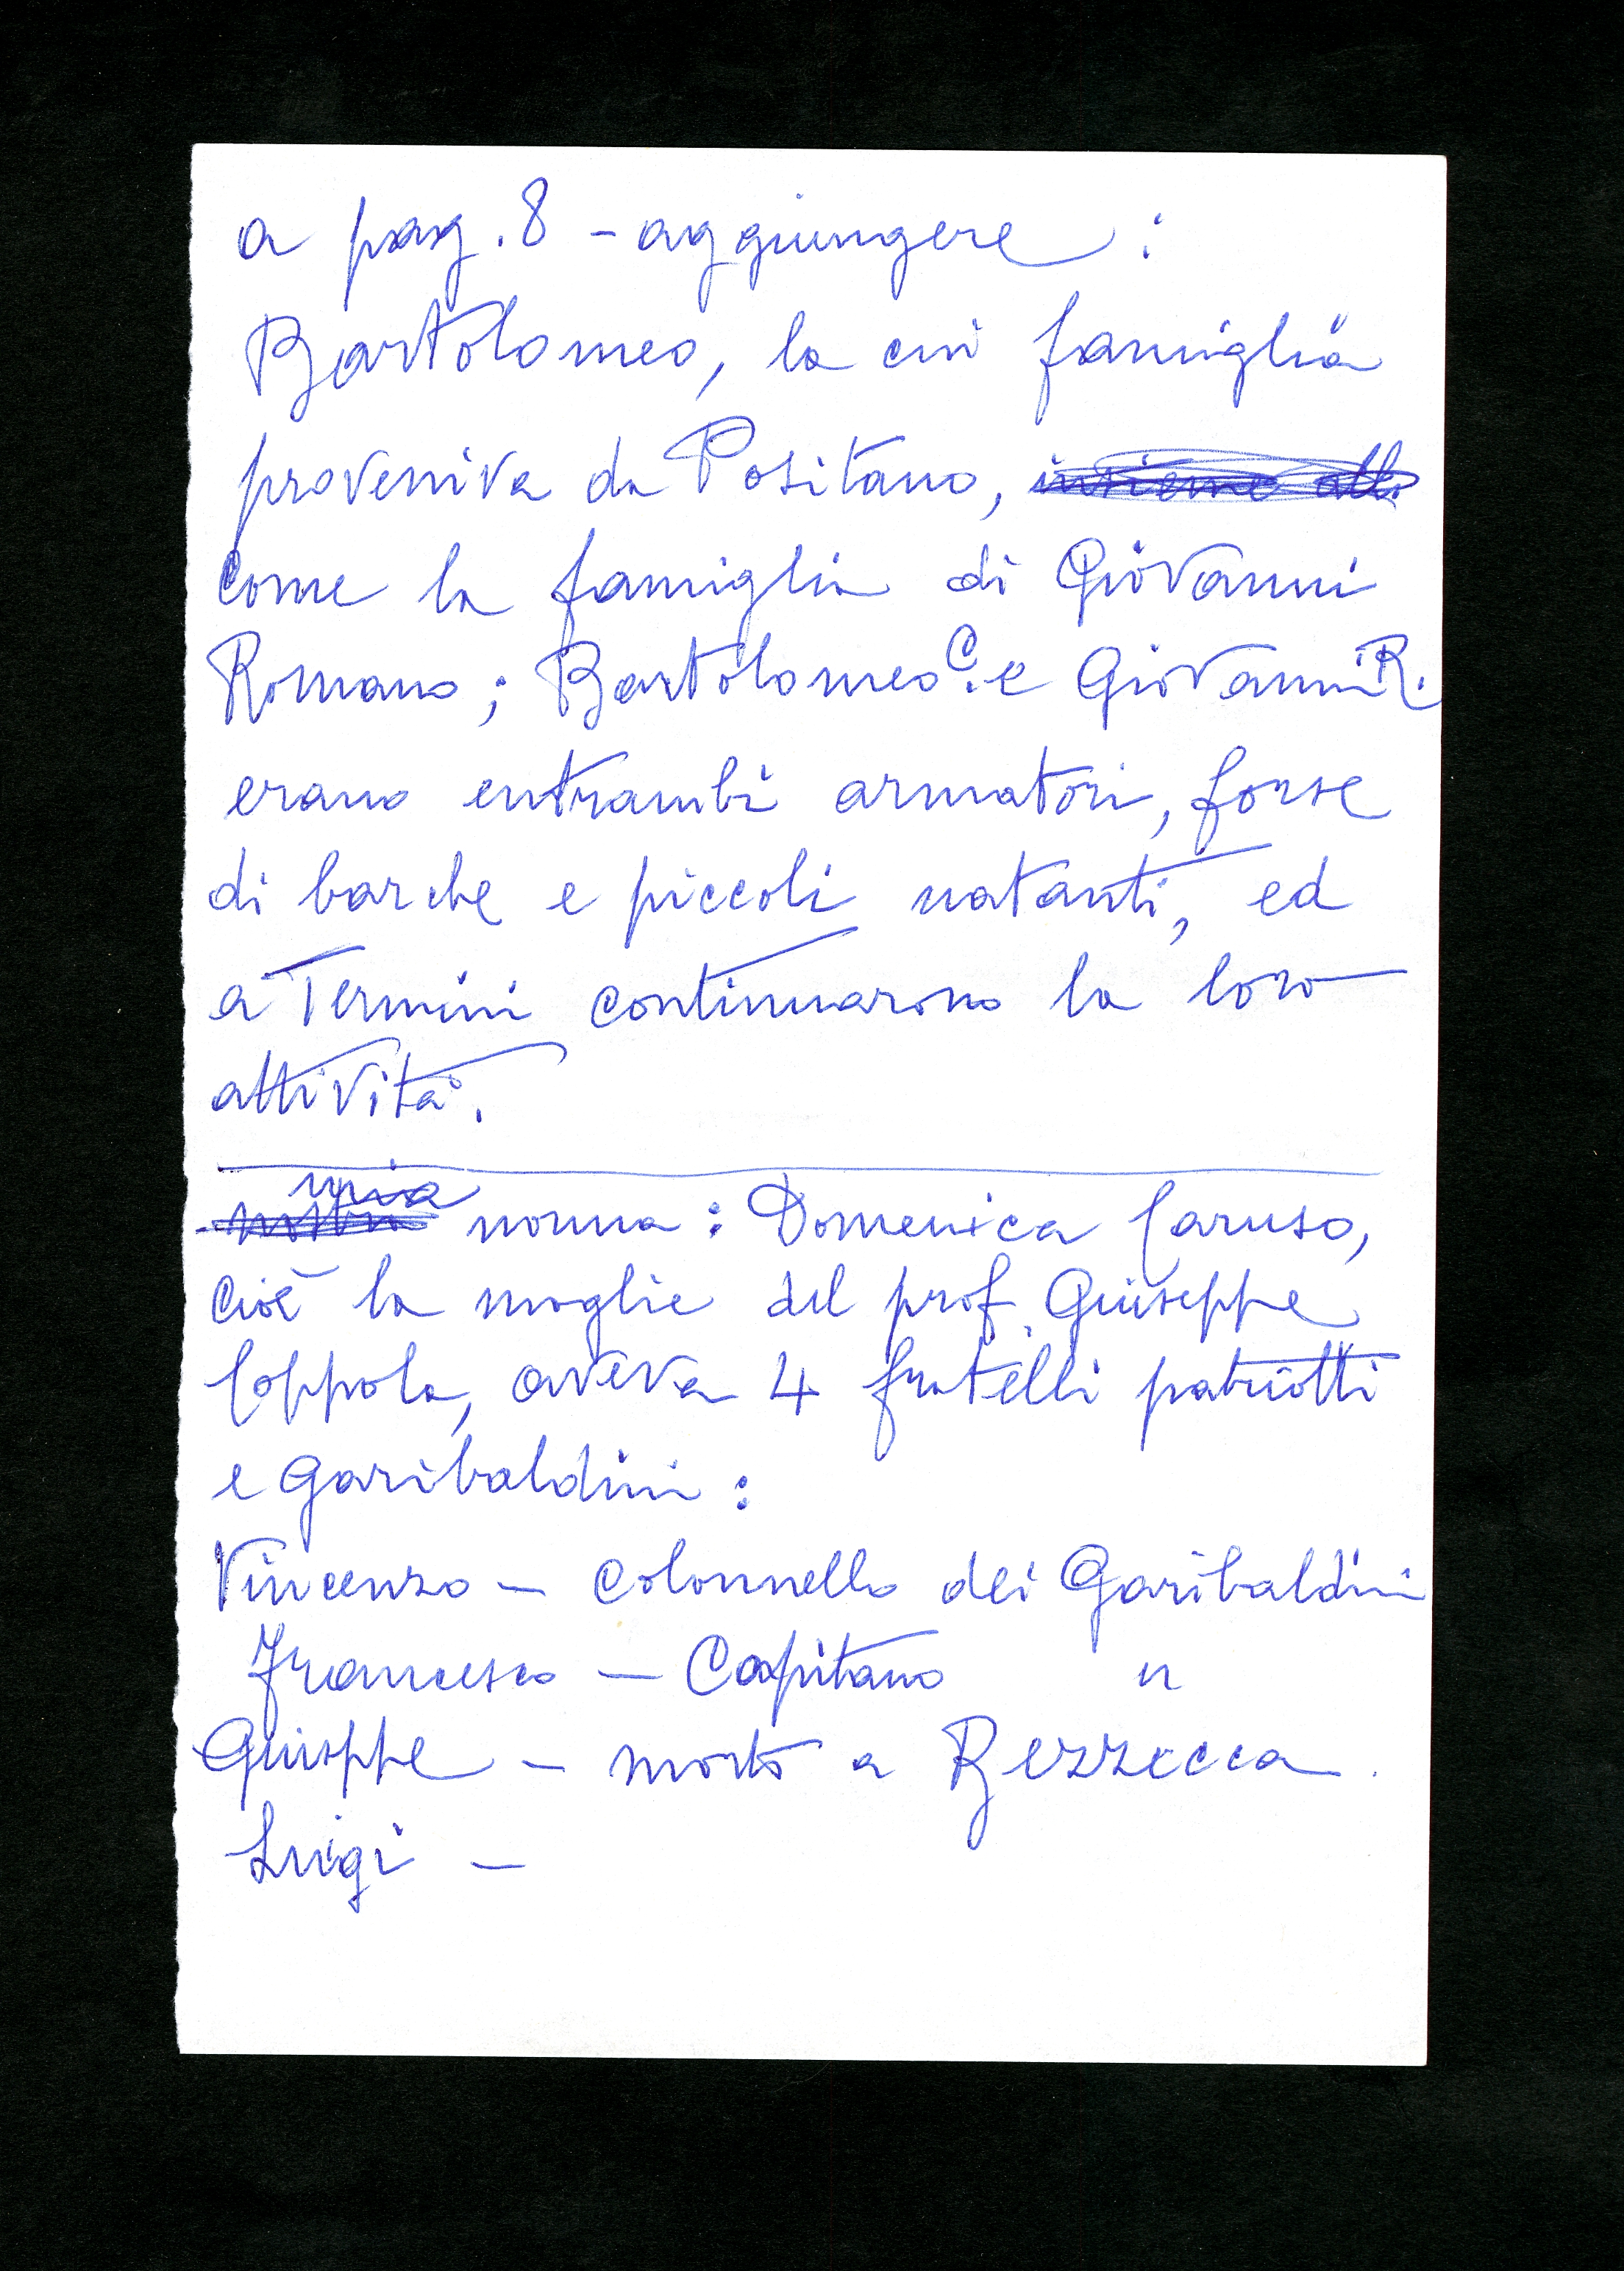 a pag. 8 - aggiungere :
Bartolomeo, la cui famiglia
proveniva da Positano, insieme alla
come la famiglia di Giovanni
Romano ; Bartolomeo C. e Giovanni R.
erano entrambi armatori, forse
di barche e piccoli natanti, ed
a Termini continuarono la loro
attività.
mia
nostra nonna : Domenica Caruso,
cioè la moglie del prof. Giuseppe
Coppola, aveva 4 fratelli patriotti
e Garibaldini :
Vincenzo - Colonnello dei Garibaldini
Francesco - Capitano "
Giuseppe - morto a Bezzecca.
Luigi -